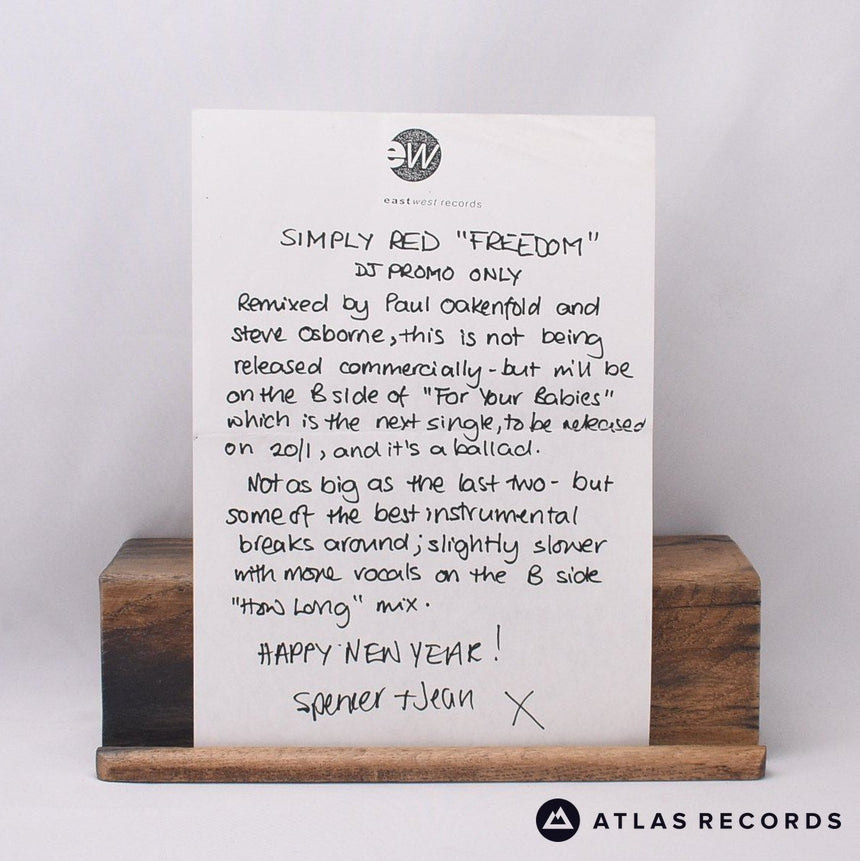 ew
eastwest records
SIMPLY RED "FREEDOM"
DJ PROMO ONLY
Remixed by Paul Oakenfold and
Steve Osborne, this is not being
released commercially - but will be
on the B side of "For Your Babies"
which is the next single, to be released
on 20/1, and it's a ballad.
Not as big as the last two - but
some of the best instrumental
breaks around; slightly slower
with more vocals on the B side
"How Long" mix.
HAPPY NEW YEAR!
Spencer + Jean X
ATLAS RECORDS